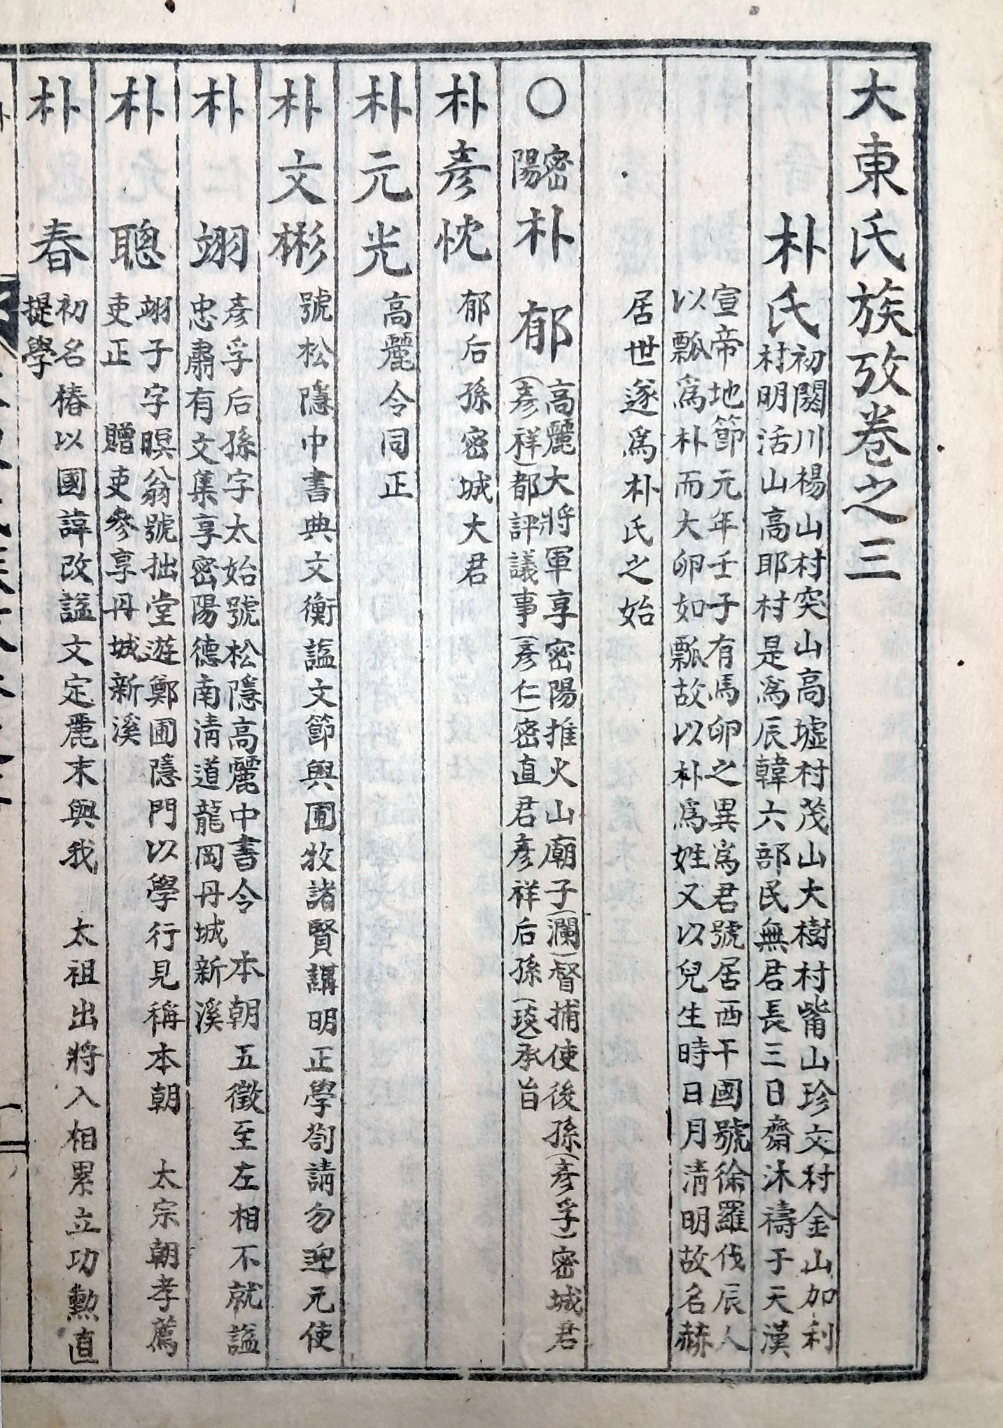 大東氏族攷卷之三
朴氏
初閼川楊山村突山高墟村茂山大樹村觜山珍支村金山加利
村明活山高耶村是爲辰韓六部民無君長三日齋沐禱于天漢
宣帝地節元年壬子有馬卵之異爲君號居西干國號徐羅伐辰人
以瓢爲朴而大卵如瓢故以朴爲姓又以兒生時日月淸明故名赫
居世遂爲朴氏之始
○密陽朴郁
高麗大將軍享密陽推火山廟子(瀾)督捕使後孫(彦孚)密城君
(彦祥)都評議事(彦仁)密直君彦祥后孫(琰)承旨
朴彦忱 郁后孫密城大君
朴元光 高麗令同正
朴文彬 號松隱中書典文衡諡文節與圃牧諸賢講明正學劄請勿迎元使
朴翊
彦孚后孫字太始號松隱高麗中書令 本朝五徵至左相不就諡
忠肅有文集享密陽德南淸道龍岡丹城新溪
朴聰
翊子字暝翁號拙堂遊鄭圃隱門以學行見稱本朝 太宗朝孝薦
吏正 贈吏參享丹城新溪
朴春
初名椿以國諱改諡文定麗末與我 太祖出將入相累立功勲直
提學